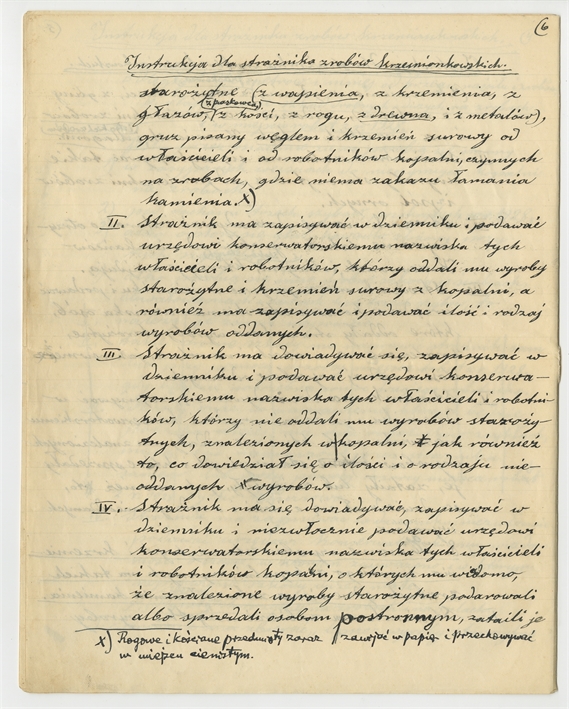 6
Instrukcja dla strażnika zrobów krzemionkowskich.
starożytne (z wapienia, z krzemienia, z
(z piaskowca),
głazów, (z kości, z rogu, z drewna, i z metalów),
gruz pisany węglem i krzemień surowy od
właścicieli i od robotników kopalni, czynnych
na zrobach, gdzie niema zakazu łamania
kamienia. x)
II. Strażnik ma zapisywać w dzienniku i podawać
urzędowi konserwatorskiemu nazwiska tych
właścicieli i robotników, którzy oddali mu wyroby
starożytne i krzemień surowy z kopalni, a
również ma zapisywać i podawać ilość i rodzaj
wyrobów oddanych.
III. Strażnik ma dowiadywać się, zapisywać w
dzienniku i podawać urzędowi konserwa-
torskiemu nazwiska tych właścicieli i robotni-
ków, którzy nie oddali mu wyrobów staroży-
tnych, znalezionych w kopalni, jak również
to, co dowiedział się o ilości i o rodzaju nie-
oddanych wyrobów.
IV. Strażnik ma się dowiadywać, zapisywać w
dzienniku i niezwłocznie podawać urzędowi
konserwatorskiemu nazwiska tych właścicieli
i robotników kopalni, o których mu wiadomo,
że znalezione wyroby starożytne podarowali
albo sprzedali osobom postronnym, zataili je
x) Rogowe i kościane przedmioty zaraz zawijać w papier i przechowywać
w miejscu cienistym.